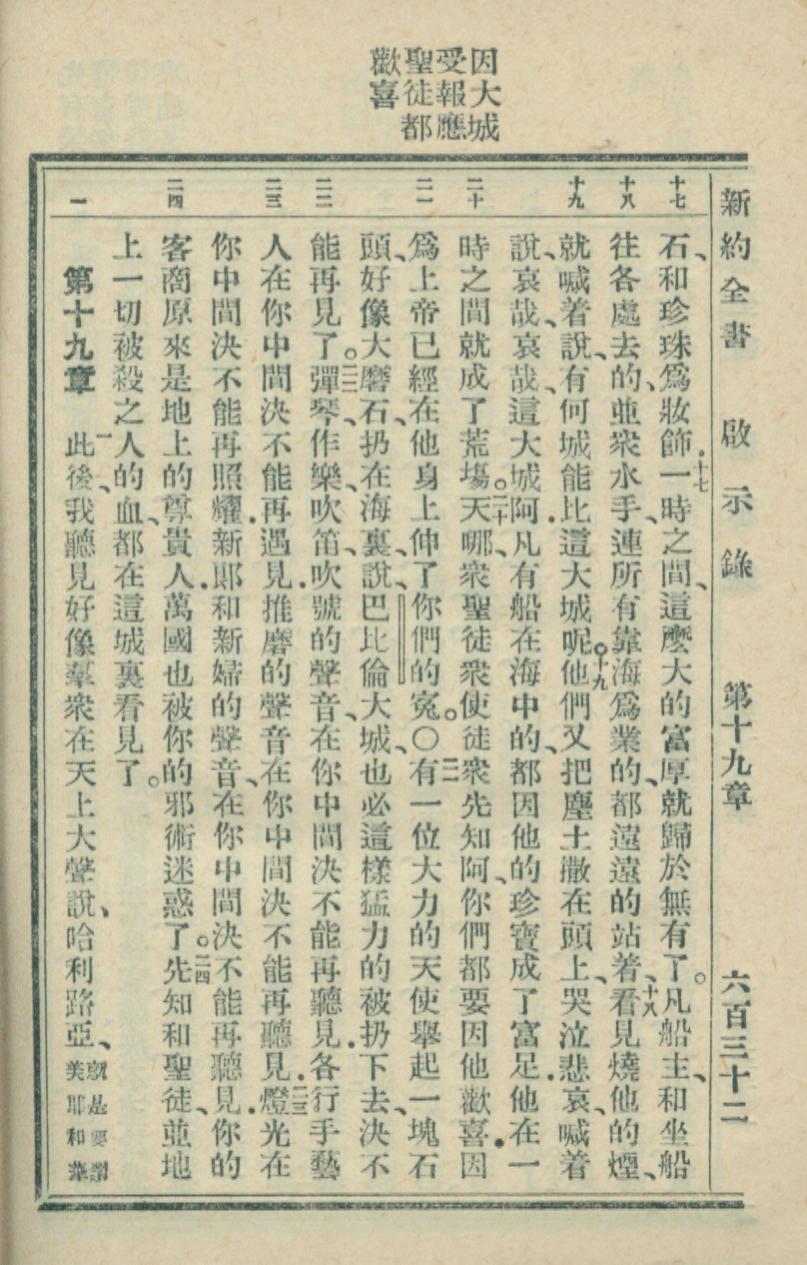 因大城
受報應
聖徒都
歡喜
新約全書 啟示錄 第十九章 六百三十二
十七
十八
十九
二十
二一
二二
二三
二四
一
石、和珍珠爲妝飾．十七一時之間、這麼大的富厚就歸於無有了。凡船主、和坐船
往各處去的、並衆水手、連所有靠海爲業的、都遠遠的站着、十八看見燒他的煙、
就喊着說、有何城能比這大城呢。十九他們又把塵土撒在頭上、哭泣悲哀、喊着
說、哀哉、哀哉、這大城阿．凡有船在海中的、都因他的珍寶成了富足．他在一
時之間就成了荒塲。二十天哪、衆聖徒衆使徒衆先知阿、你們都要因他歡喜．因
爲上帝已經在他身上伸了你們的寃。〇二一有一位大力的天使舉起一塊石
頭、好像大磨石、扔在海裏、說、巴比倫大城、也必這樣猛力的被扔下去、決不
能再見了。二二彈琴、作樂、吹笛、吹號的聲音、在你中間決不能再聽見．各行手藝
人在你中間決不能再遇見．推磨的聲音在你中間決不能再聽見．二三燈光在
你中間決不能再照耀．新郞和新婦的聲音、在你中間決不能再聽見．你的
客商原來是地上的尊貴人．萬國也被你的邪術迷惑了。二四先知和聖徒、並地
上一切被殺之人的血、都在這城裏看見了。
第十九章 一此後、我聽見好像羣衆在天上大聲說、哈利路亞、就是要讚美耶和華